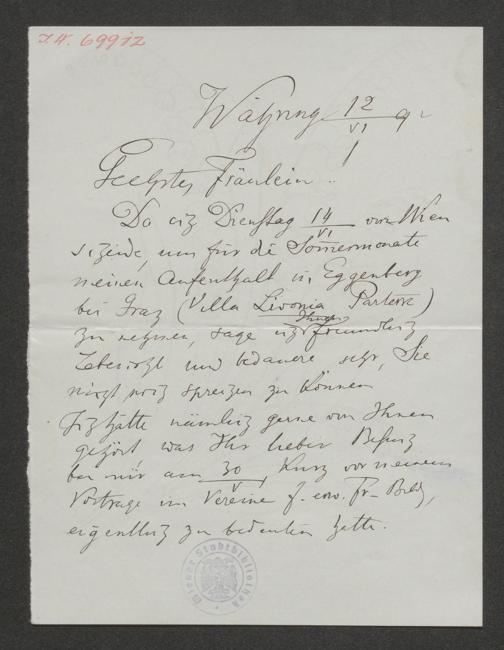 I.N. 69912
Währing 12/VI 92
Geehrtes Fräulein ..
Da ich Dienstag 14/VI von Wien
scheide, um für die Sommermonate
meinen Aufenthalt in Eggenberg
bei Graz (Villa Livonia Parterre)
zu nehmen, sage ich Ihnen freundlich
Lebewohl und bedauere sehr, Sie
nicht noch sprechen zu können
Ich hätte nämlich gerne von Ihnen
gehört was Ihr lieber Besuch
bei mir am 30/V, kurz vor meinem
Vortrage im Vereine f. erw. Fr-Bild,
eigentlich zu bedeuten hatte.
Wiener Stadtbibliothek